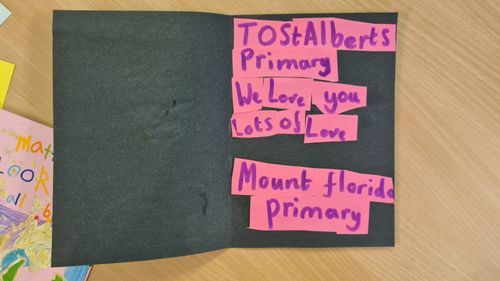 TOStAlberts
Primary
We Love you
Lots of Love
Mount florida
primary